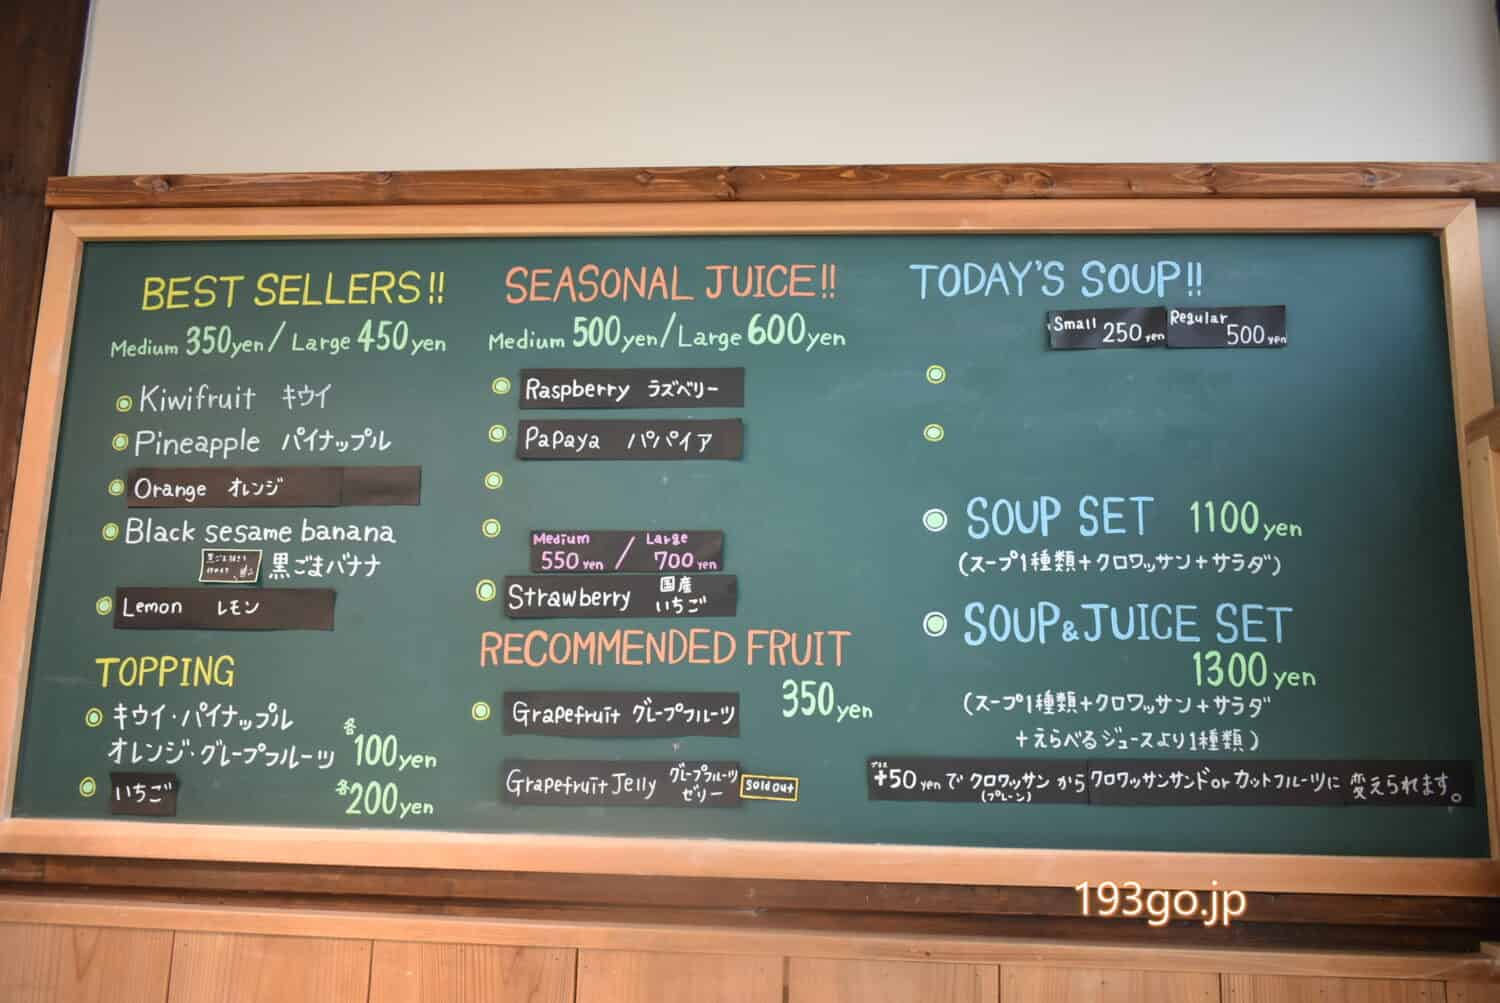 BEST SELLERS!!
Medium 350yen/ Large 450yen
Kiwifruit キウイ
Pineapple パイナップル
Orange オレンジ
Black sesame banana
黒ごまバナナ
Lemon レモン
TOPPING
キウイ・パイナップル
オレンジ・グレープフルーツ 各100yen
いちご 各200yen
SEASONAL JUICE!!
Medium 500yen/Large 600yen
Raspberry ラズベリー
Papaya パパイア
Medium 550yen / Large 700yen
Strawberry 国産いちご
RECOMMENDED FRUIT
350yen
Grapefruit グレープフルーツ
Grapefruit Jelly グレープフルーツゼリー Sold out
TODAY'S SOUP!!
Small 250yen Regular 500yen
SOUP SET 1100yen
(スープ1種類+クロワッサン+サラダ)
SOUP&JUICE SET
1300yen
(スープ1種類+クロワッサン+サラダ
+えらべるジュースより1種類)
プラス
+50yenで クロワッサン から クロワッサンサンドorカットフルーツに 変えられます。
(プレーン)
193go.jp